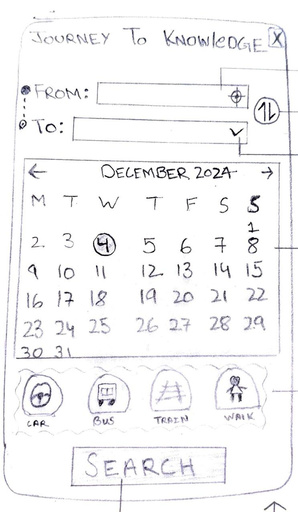 JOURNEY TO KNOWLEDGE X
FROM:
TO:
← DECEMBER 2024 →
M T W T F S S
1
2. 3 4 5 6 7 8
9 10 11 12 13 14 15
16 17 18 19 20 21 22
23 24 25 26 27 28 29
30 31
CAR BUS TRAIN WALK
SEARCH